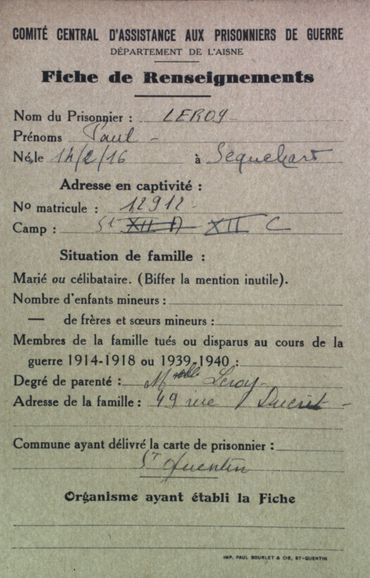 COMITÉ CENTRAL D'ASSISTANCE AUX PRISONNIERS DE GUERRE
DÉPARTEMENT DE L'AISNE
Fiche de Renseignements
Nom du Prisonnier : LEROY
Prénoms Paul -
Né, le 14/2/16 à Sequehart
Adresse en captivité :
No matricule : 12912
Camp : St XII D XII C
Situation de famille :
Marié ou célibataire. (Biffer la mention inutile).
Nombre d'enfants mineurs :
— de frères et sœurs mineurs :
Membres de la famille tués ou disparus au cours de la
guerre 1914-1918 ou 1939-1940 :
Degré de parenté : Leroy -
Adresse de la famille : 49 rue -
Commune ayant délivré la carte de prisonnier :
St Quentin
Organisme ayant établi la Fiche
IMP. PAUL BOURLET & CIE, ST-QUENTIN